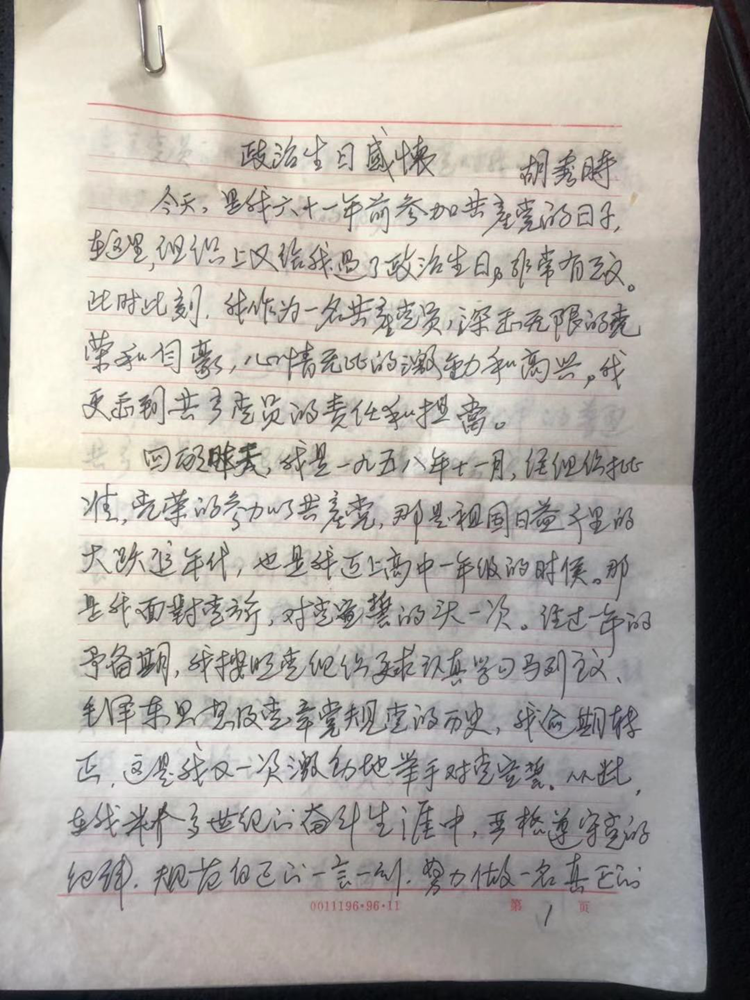 政治生日感怀 胡秀時
今天，是我六十一年前参加共產党的日子，
在这里，组织上又给我过了政治生日，非常有意义。
此时此刻，我作为一名共产党员，深感无限的光
荣和自豪，心情无比的激動和高兴，我
更感到共产党员的责任和担当。
回顾昨天，我是一九五八年十一月，经组织批
准，光荣的参加了共產党，那是祖国日益千里的
大跃进年代，也是我迈上高中一年级的时候。那
是我面對党旂，对党宣誓的头一次。经过一年的
予备期，我按照党组织要求认真学习马列主义、
毛泽东思想及党章党规党的历史，我合期转
正，这是我又一次激动地举手对党宣誓。从此，
在我半个多世纪的奋斗生涯中，严格遵守党的
纪律，规范自己的一言一行，努力做一名真正的
0011196·96·11 第 1 页